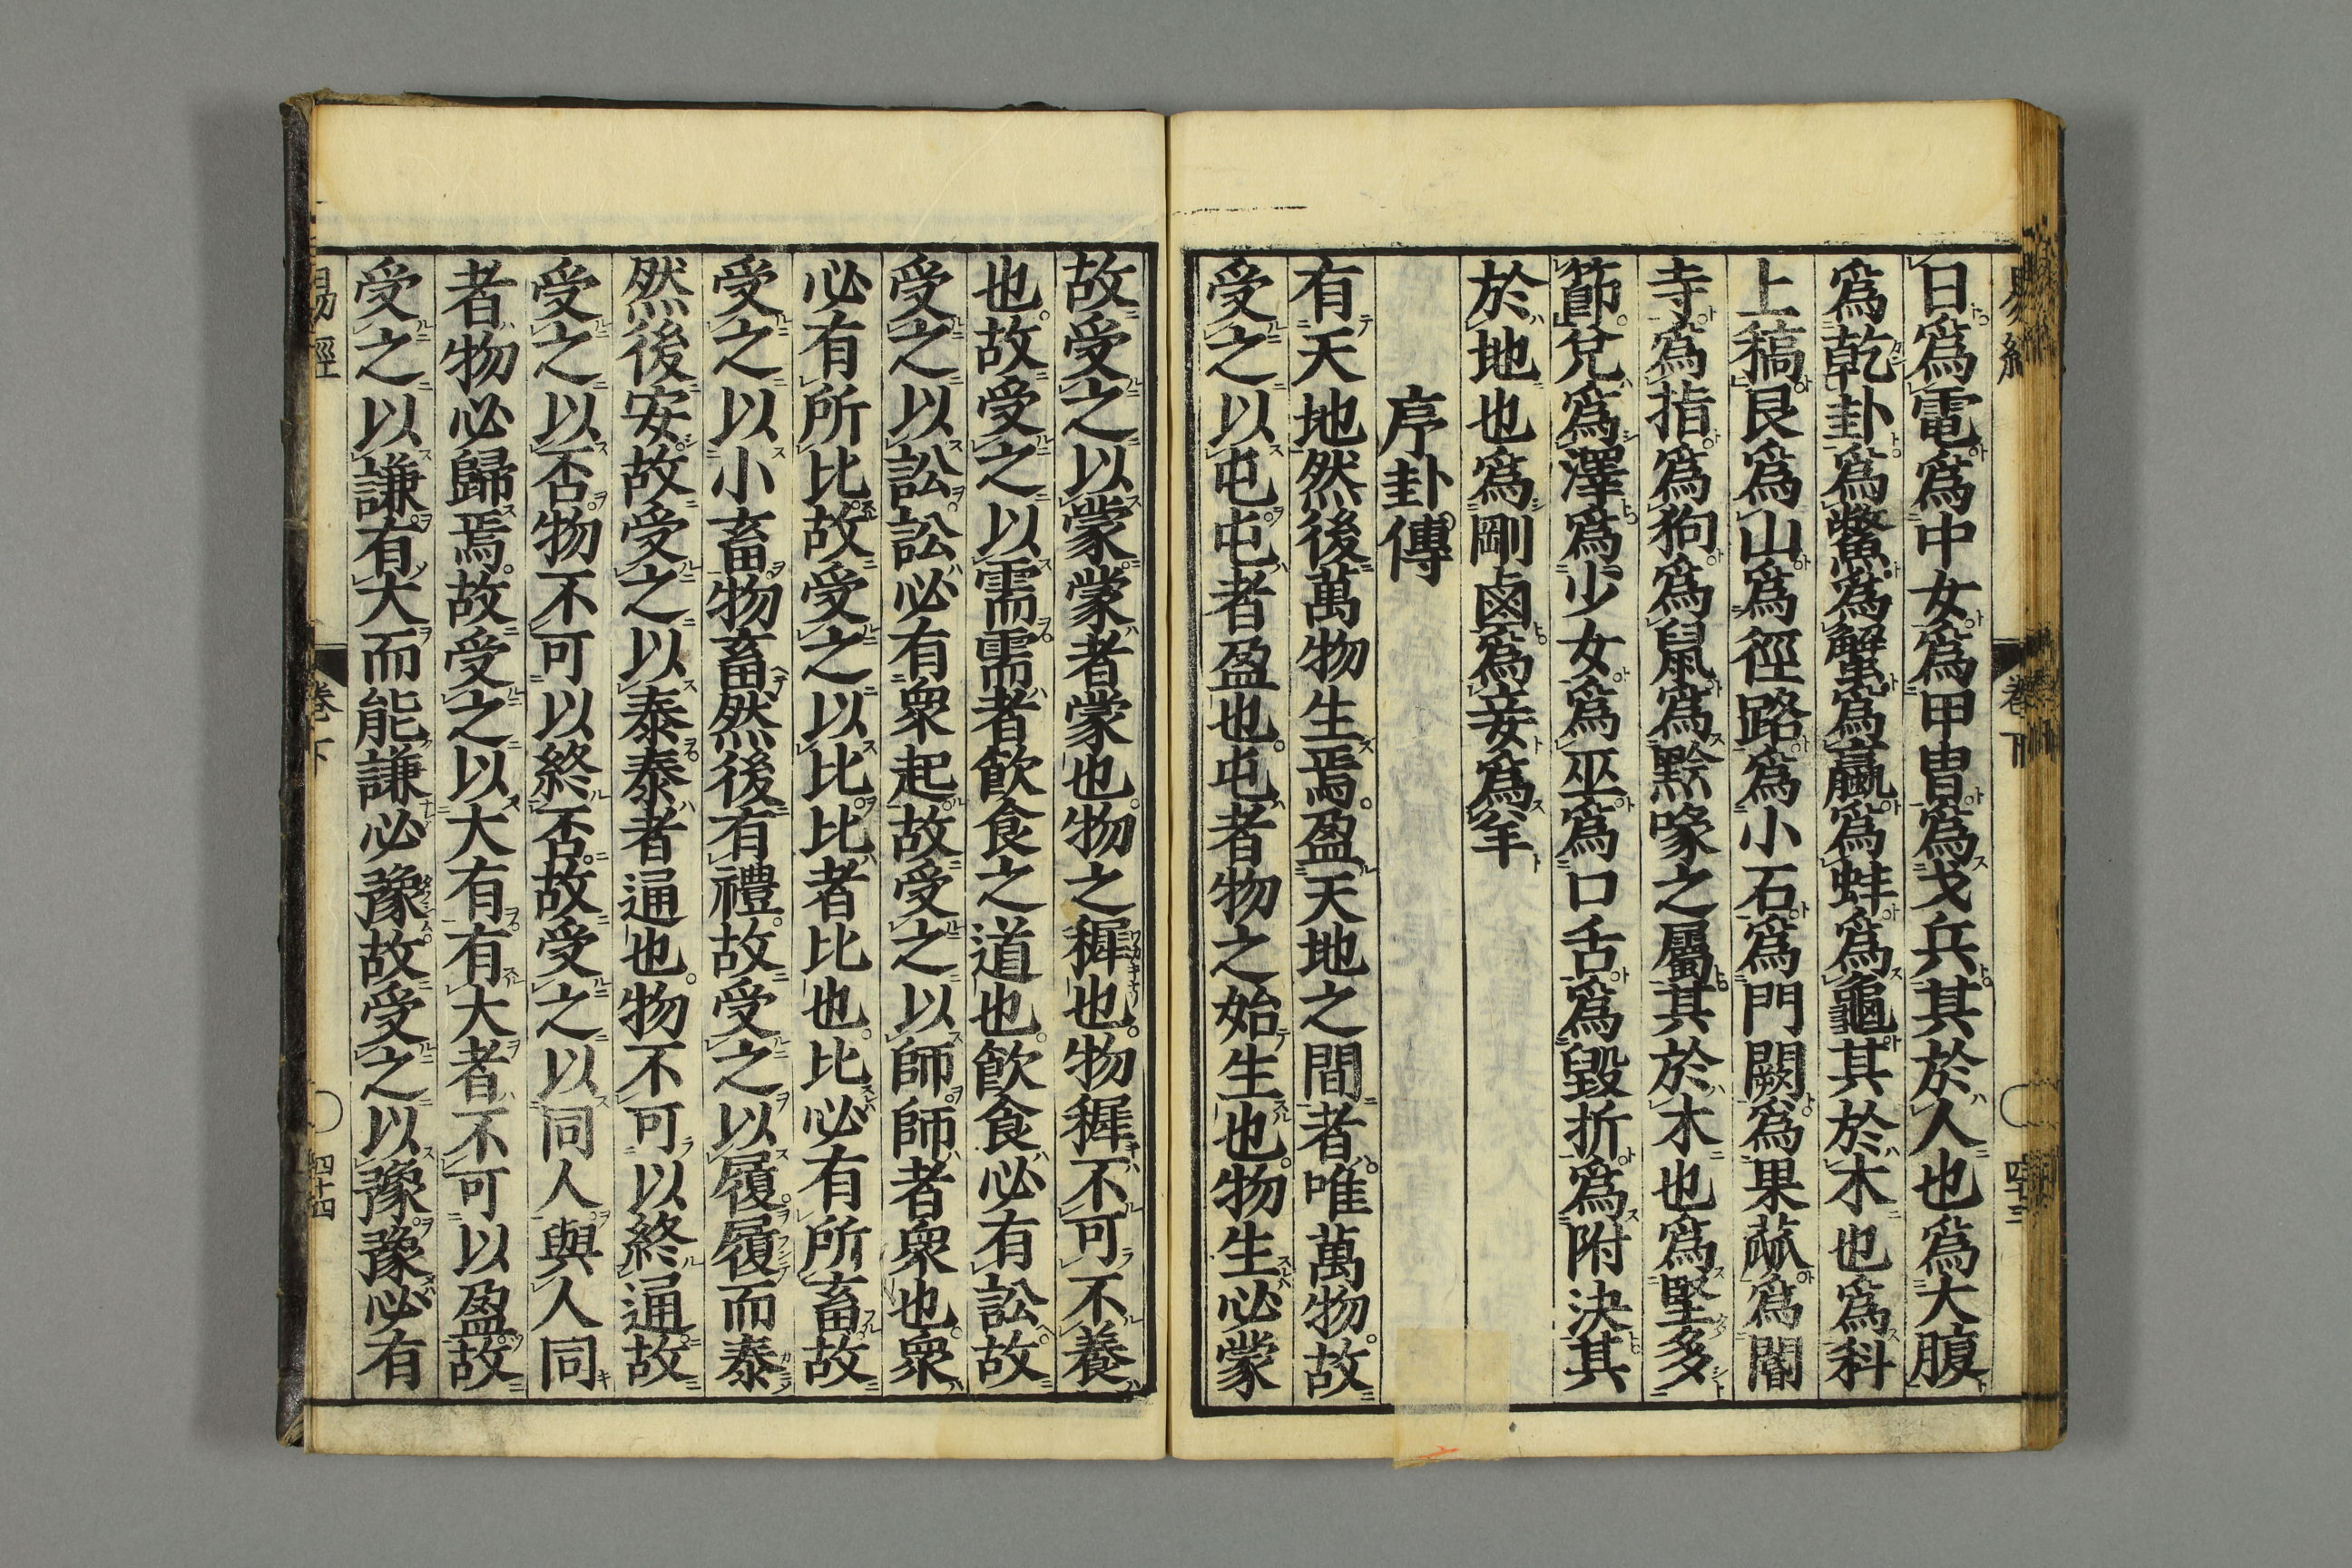 易經 卷下 四十三
日爲電爲中女爲甲冑爲戈兵其於人也爲大腹
爲乾卦爲鱉爲蟹爲蠃爲蚌爲龜其於木也爲科
上稿艮爲山爲徑路爲小石爲門闕爲果蓏爲閽
寺爲指爲狗爲鼠爲黔喙之屬其於木也爲堅多
節兌爲澤爲少女爲巫爲口舌爲毀折爲附決其
於地也爲剛鹵爲妾爲羊
序卦傳
有天地然後萬物生焉盈天地之間者唯萬物故
受之以屯屯者盈也屯者物之始生也物生必蒙
故受之以蒙蒙者蒙也物之穉也物穉不可不養
也故受之以需需者飲食之道也飲食必有訟故
受之以訟訟必有衆起故受之以師師者衆也衆
必有所比故受之以比比者比也比必有所畜故
受之以小畜物畜然後有禮故受之以履履而泰
然後安故受之以泰泰者通也物不可以終通故
受之以否物不可以終否故受之以同人與人同
者物必歸焉故受之以大有有大者不可以盈故
受之以謙有大而能謙必豫故受之以豫豫必有
易經 卷下 四十四